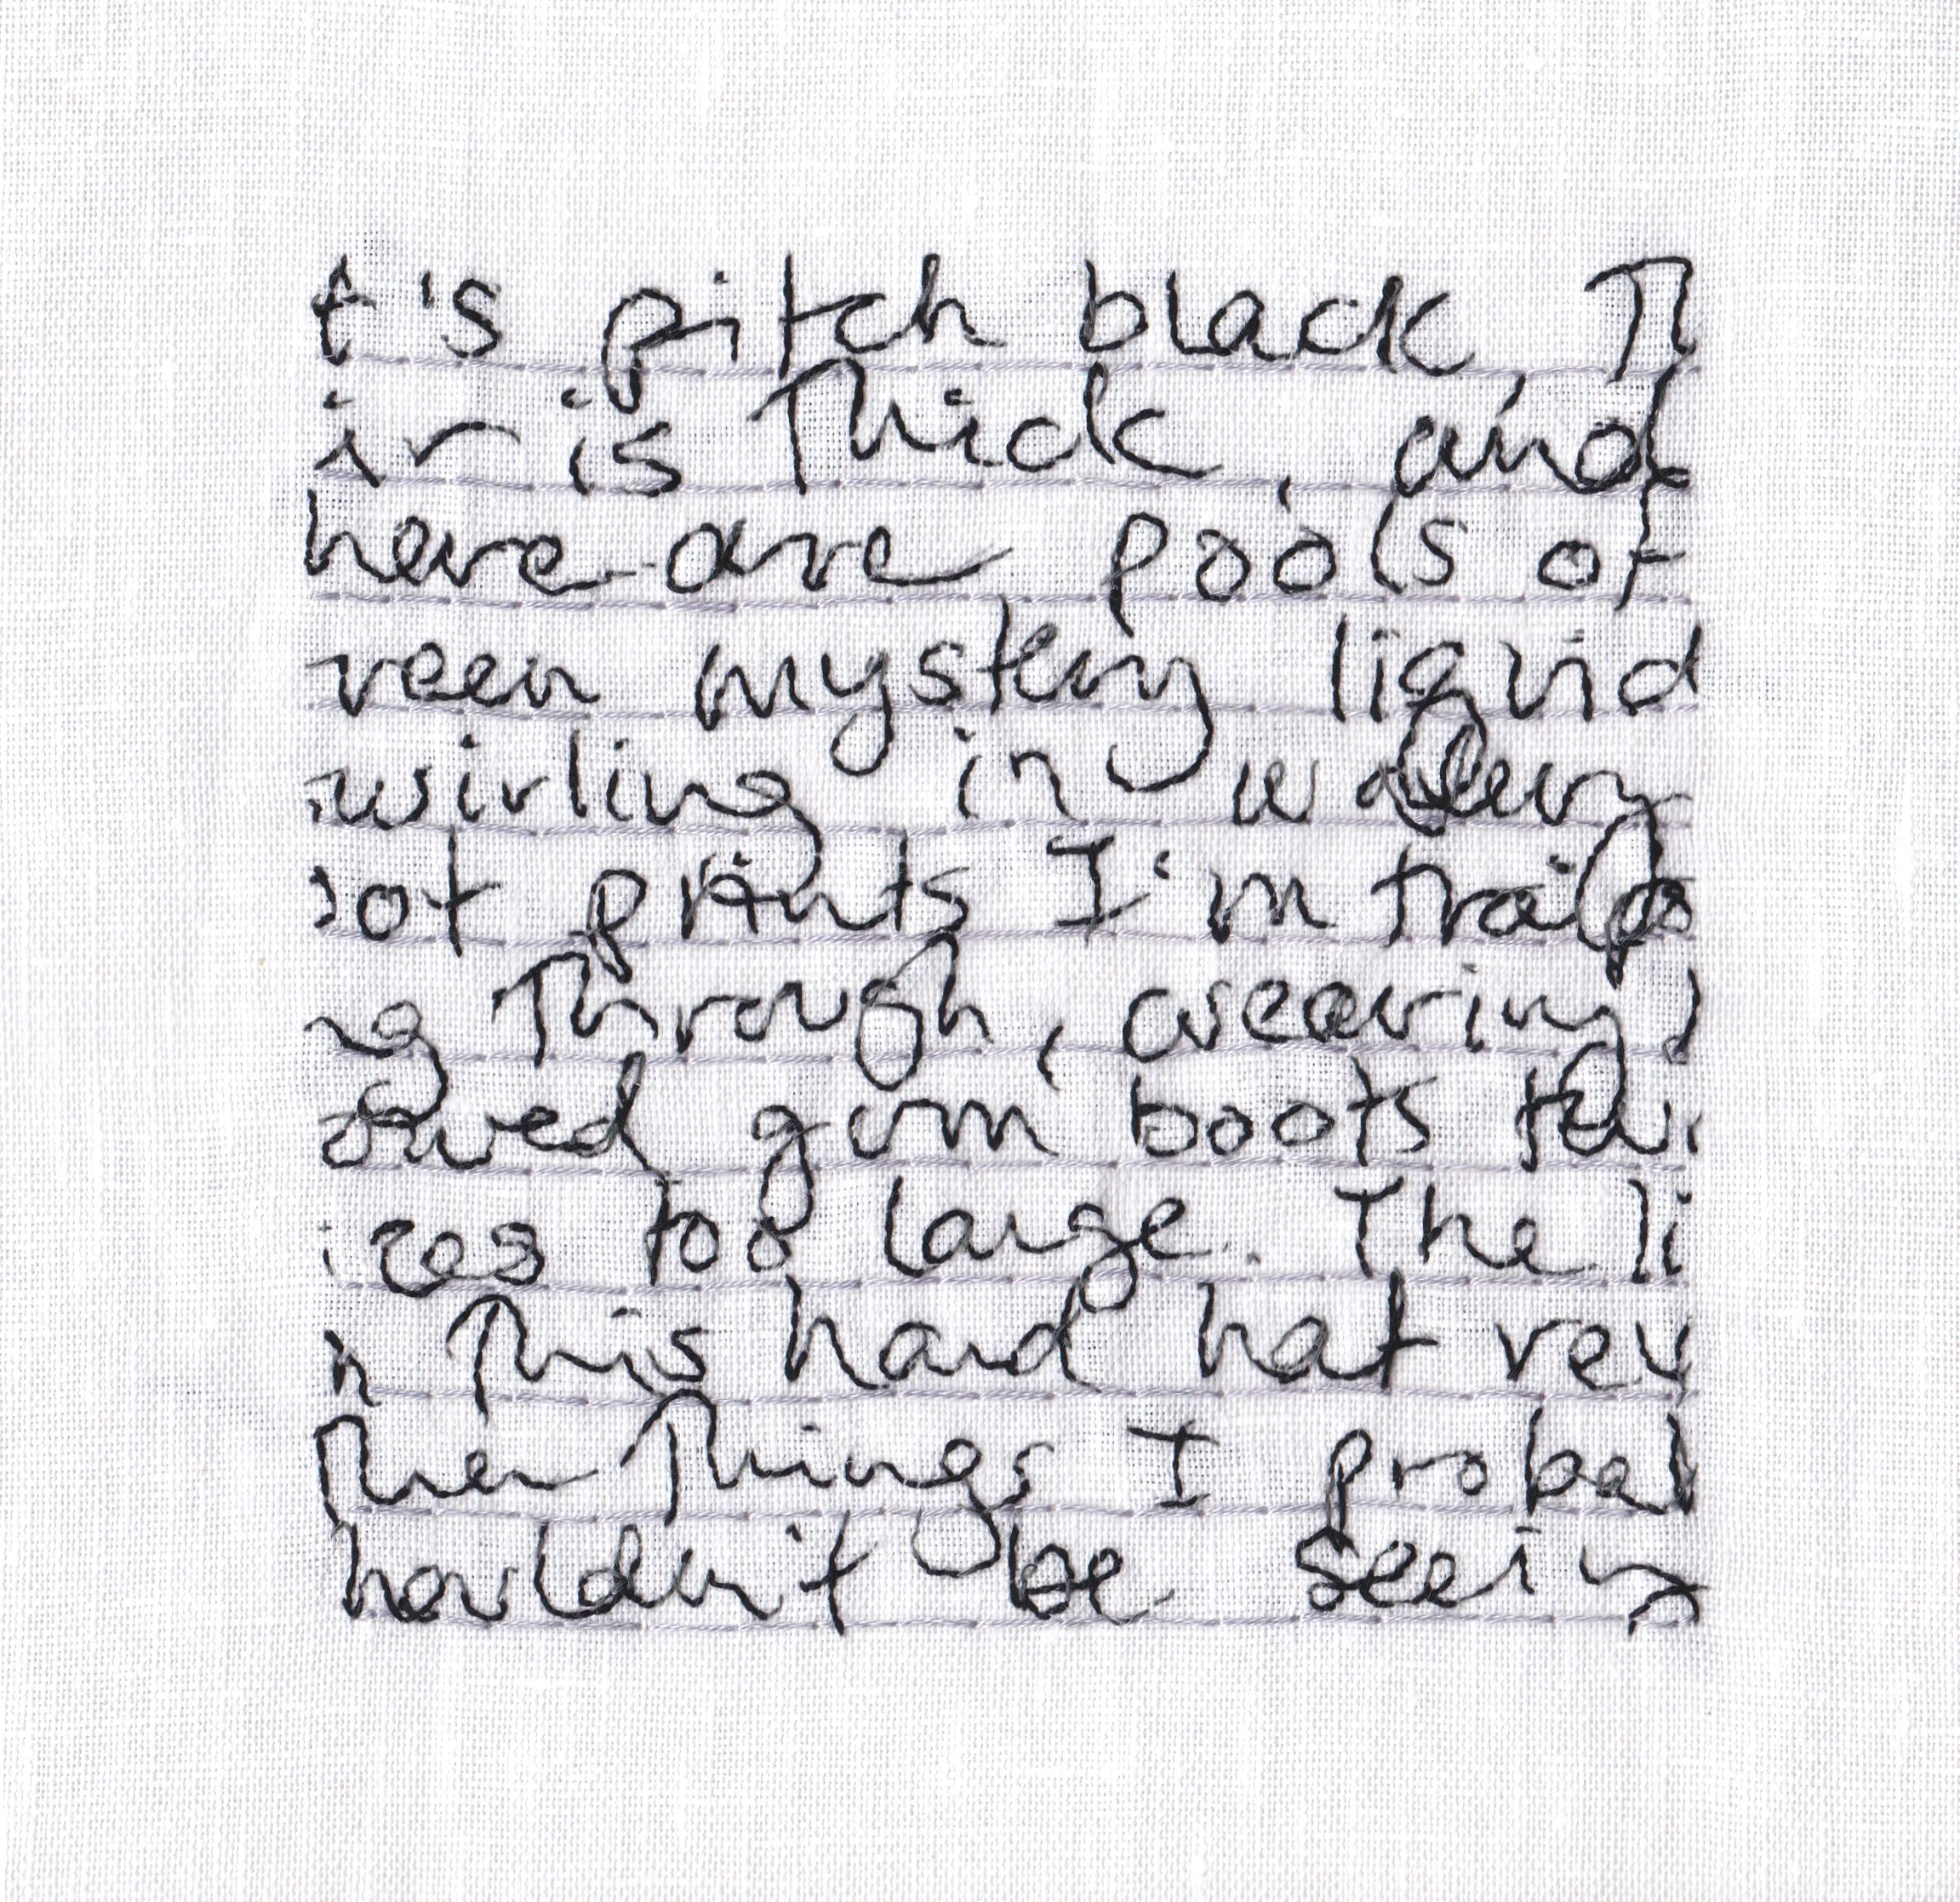 t's pitch black, T
ir is Thick, and
here are pools of
reen mystery liquid
wirling in watery
oot prints I'm trail
ng Through, wearing
owed gum boots
izes too large. The li
n This hard hat rev
Then Things I probab
houldn't be seein